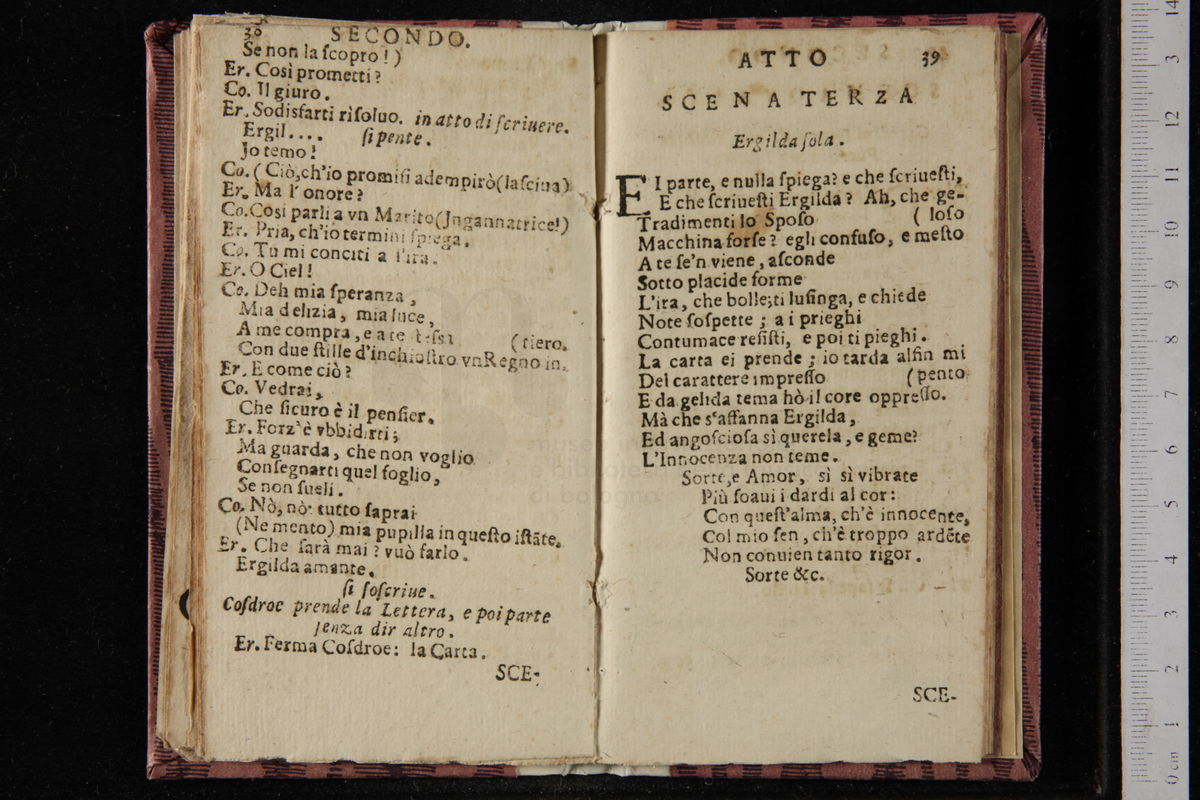 38 SECONDO.
Se non la ſcopro!)
Er. Così prometti?
Co. Il giuro.
Er. Sodisfarti rìſoluo. in atto di ſcriuere.
Ergil.... ſi pente.
Jo temo!
Co. (Ciò, ch'io promiſi adempirò(laſciua)
Er. Ma l'onore?
Co. Cosi parli a vn Marito(Jngannatrice!)
Er. Pria, ch'io termini ſpiega.
Co. Tu mi conciti a l'ira.
Er. O Ciel!
Co. Deh mia ſperanza,
Mia delizia, mia luce,
A me compra, e a te ſteſsa (tiero.
Con due ſtille d'inchioſtro vn Regno in-
Er. E come ciò?
Co. Vedrai,
Che ſicuro è il penſier.
Er. Forz'è vbbidirti;
Ma guarda, che non voglio
Conſegnarti quel foglio,
Se non ſueli.
Co. Nò, nò: tutto ſaprai
(Ne mento) mia pupilla in queſto iſtāte.
Er. Che ſarà mai? vuò farlo.
Ergilda amante.
ſi ſoſcriue.
Coſdroe prende la Lettera, e poi parte
ſenza dir altro.
Er. Ferma Coſdroe: la Carta.
SCE-
ATTO 39
SCENA TERZA
Ergilda ſola.
EI parte, e nulla ſpiega? e che ſcriueſti,
E che ſcriueſti Ergilda? Ah, che ge-
Tradimenti lo Spoſo ( loſo
Macchina forſe? egli confuſo, e meſto
A te ſe'n viene, aſconde
Sotto placide forme
L'ira, che bolle;ti luſinga, e chiede
Note ſoſpette; a i prieghi
Contumace reſiſti, e poi ti pieghi.
La carta ei prende; io tarda alfin mi
Del carattere impreſſo (pento
E da gelida tema hò il core oppreſſo.
Mà che s'affanna Ergilda,
Ed angoſcioſa sì querela, e geme?
L'Innocenza non teme.
Sorte, e Amor, sì sì vibrate
Più ſoaui i dardi al cor:
Con queſt'alma, ch'è innocente,
Col mio ſen, ch'è troppo ardēte
Non conuien tanto rigor.
Sorte &c.
SCE-